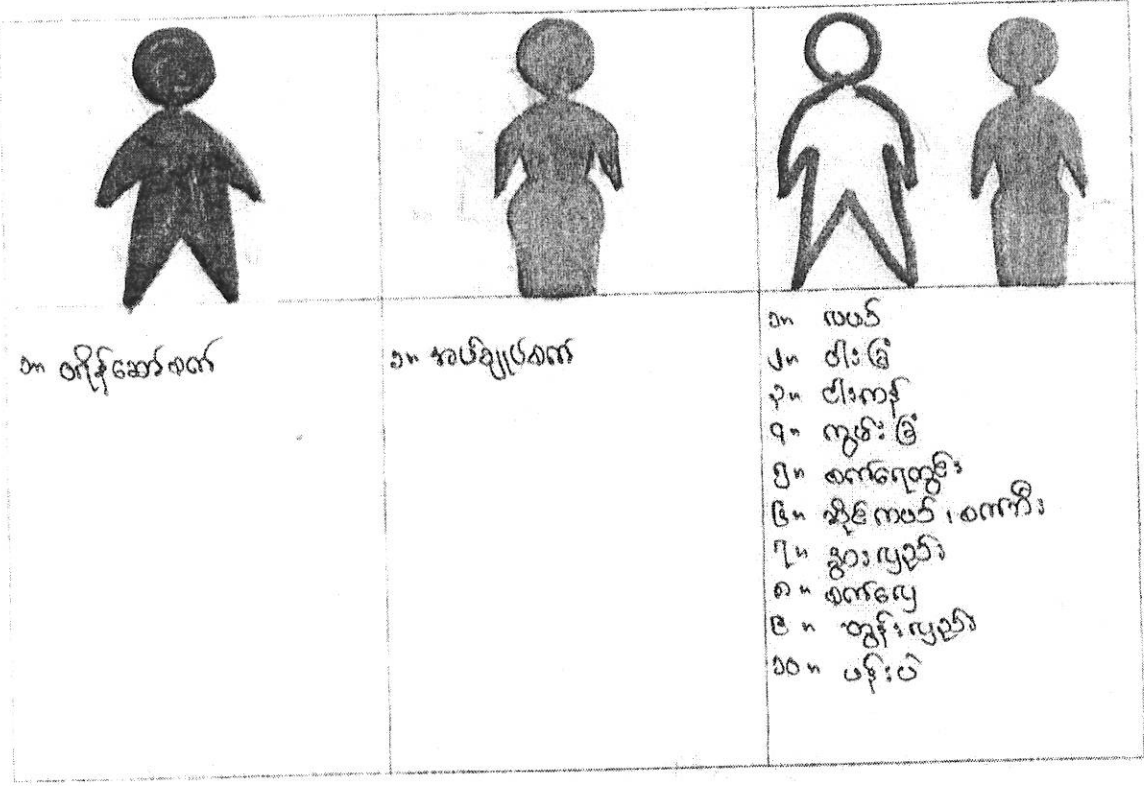 ၁။ ဝရိန်ဆော်စက်
၁။ အပ်ချုပ်စက်
၁။ လယ်
၂။ ဝါးခြံ
၃။ ငါးကန်
၄။ ကွမ်းခြံ
၅။ စက်ရေတွင်း
၆။ ဆိုင်ကယ်၊ စက်ဘီး
၇။ နွားလှည်း
၈။ စက်လှေ
၉။ တွန်းလှည်း
၁၀။ ပန်းပဲ